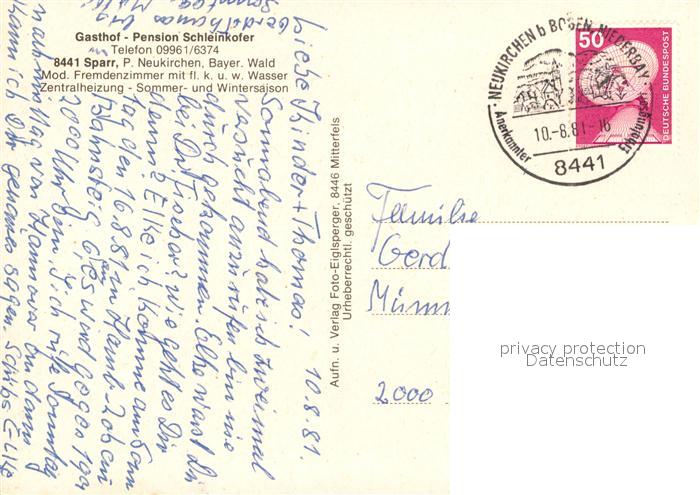 Gasthof - Pension Schleinkofer
Telefon 09961/6374
8441 Sparr, P. Neukirchen, Bayer. Wald
Mod. Fremdenzimmer mit fl. k. u. w. Wasser
Zentralheizung - Sommer- und Wintersaison
Aufn. u. Verlag Foto-Eiglsperger, 8446 Mitterfels
Urheberrechtl. geschützt
NEUKIRCHEN b BOGEN, NIEDERBAY.
10.-8.81-16
Anerkannter Erholungsort
8441
50
DEUTSCHE BUNDESPOST
10.8.81.
Liebe Kinder + Thomas!
Sonnabend habe ich zweimal
versucht anzurufen bin nie
durch gekommen. Elke warst Du
bei Dr. Fischer? wie geht es Dir
denn? Elke ich komme am Sonn
tag den 16.8.81 in Hamb-
Bahnsteig es wird gegen 19
2000 Uhr ich rufe Sonntag
nachmittag von Hannover an dann
kann ich Dir genaues sagen. Elke
Familie
Gerd
2000
privacy protection
Datenschutz